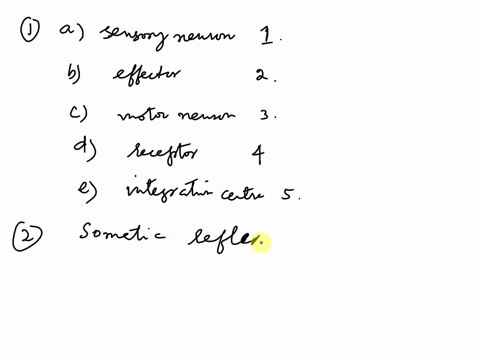 ① a) sensory neuron 1.
b) effector 2.
c) motor neuron 3.
d) receptor 4
e) integration centre 5.
② Sometic reflex